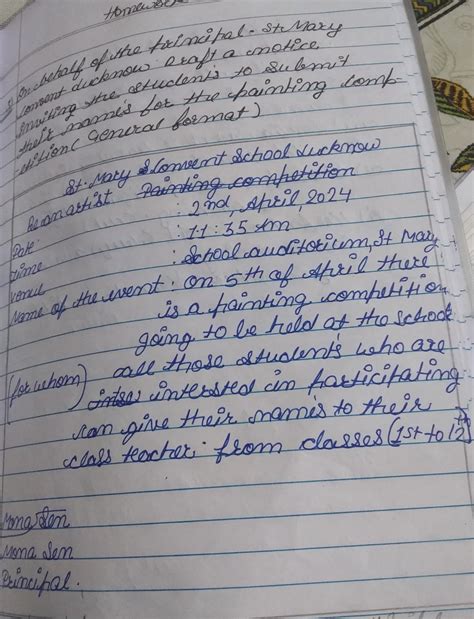 Homework
On behalf of the principal - St. Mary
convent lucknow draft a notice
inviting the students to submit
their names for the painting comp-
etition (General format)
St. Mary Convent School lucknow
Be an artist Painting competition
Date : 2nd, April, 2024
Time : 11:35 Am
venue : School auditorium, St Mary
Name of the event : on 5th of April there
is a painting competition
going to be held at the school
(for whom) all those students who are
intrested in participating
can give their names to their
class teacher. from classes (1st to 12th)
Mona Sen
Mona Sen
Principal.